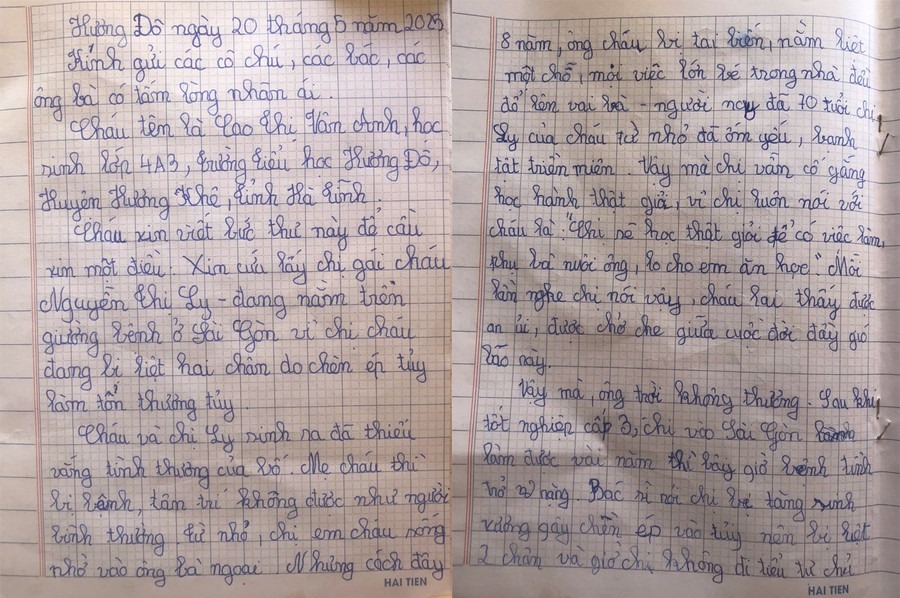 Hương Đô ngày 20 tháng 5 năm 2025
Kính gửi các cô chú, các bác, các
ông bà có tấm lòng nhân ái.
Cháu tên là Cao Thị Vân Anh, học
sinh lớp 4A3, trường tiểu học Hương Đô,
Huyện Hương Khê, tỉnh Hà Tĩnh.
Cháu xin viết bức thư này để cầu
xin một điều: Xin cứu lấy chị gái cháu
Nguyễn Thị Ly - đang nằm trên
giường bệnh ở Sài Gòn vì chị cháu
đang bị liệt hai chân do chèn ép tủy
làm tổn thương tủy.
Cháu và chị Ly sinh ra đã thiếu
vắng tình thương của bố. Mẹ cháu thì
bị bệnh, tâm trí không được như người
bình thường. Từ nhỏ, chị em cháu sống
nhờ vào ông bà ngoại. Nhưng cách đây
HAI TIEN
8 năm, ông cháu bị tai biến, nằm liệt
một chỗ, mọi việc lớn bé trong nhà đều
đổ lên vai bà - người nay đã 70 tuổi chị
Ly của cháu từ nhỏ đã ốm yếu, bệnh
tật triền miên. Vậy mà chị vẫn cố gắng
học hành thật giỏi, vì chị luôn nói với
cháu là: "Chị sẽ học thật giỏi để có việc làm,
phụ bà nuôi ông, lo cho em ăn học." Mỗi
lần nghe chị nói vậy, cháu lại thấy được
an ủi, được chở che giữa cuộc đời đầy gió
bão này.
Vậy mà, ông trời không thương. Sau khi
tốt nghiệp cấp 3, chị vào Sài Gòn
làm được vài năm thì bây giờ bệnh tình
trở nặng. Bác sĩ nói chị bị tăng sinh
xương gây chèn ép vào tủy nên bị liệt
2 chân và giờ chị không đi tiểu tự chủ
HAI TIEN